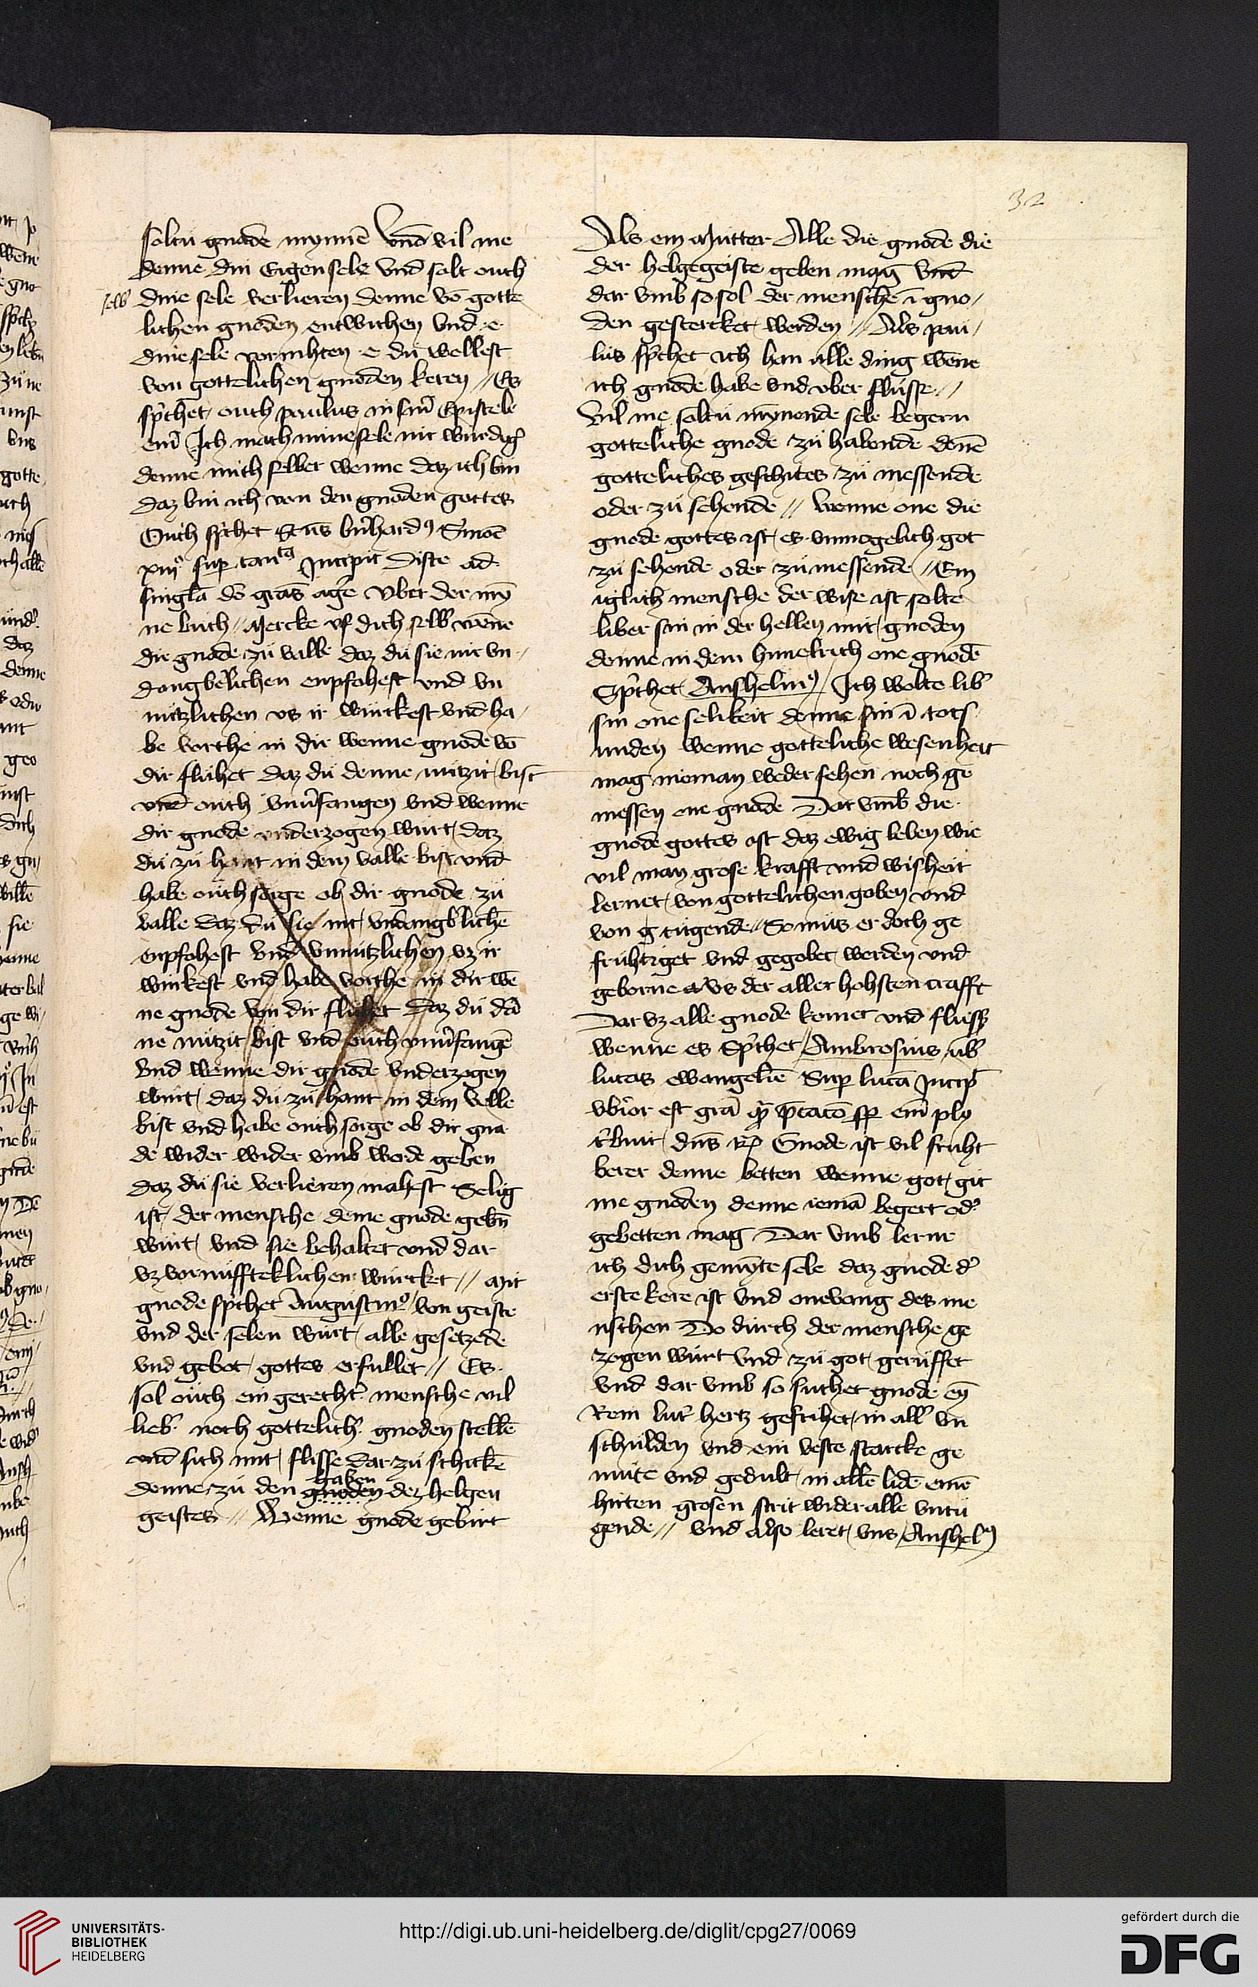 32
soltu gnade mynnē Vnd vil me
denne din Eigen sele vnd solt ouch
dine sele verlieren denne vō gotte
lichen gnoden entwichen vnd e
dine sele vernihten e du wellest
von gottelichen gnoden keren // Es
spͬchet ouch paulus in sinͬ Epistele
einͬ Ich mach mine sele nit wurdigͬ
denne mich selber wenne daz ich bin
daz bin ich von den gnoden gottes
Ouch spͬchet Sctūs bn̄hardꝰ Smoē
Incipit Disce ad
singͬla dō grās agͬe vber der my̅
ne buch // Mercke vf dich selbͬ wēne
dir gnode zu valle daz du sie nit vn
dangbͬlichen enpfohest vnd vn
nutzlichen vs ir wurckest vnd ha
be vorthe in dir wenne gnode vō
dir fluhet daz du denne nutzit bist
vnd ouch vnuͬfangen vnd wenne
dir gnode vnderzogen wurt daz
du zu hant in dem valle bist vnd
habe ouch sorge ob dir gnode zu
valle daz du sie nit vndangbͬlichē
enpfohest vnd vnnutzlichen vz ir
wurkest vnd habe vorthe in dir wē
ne gnode von dir fluhet daz du dā
ne nutzit bist vnd ouch vnuͬfangē
vnd wenne dir gnode vnderzogen
wurt daz du zu hant in dem velle
bist vnd habe ouch sorge ob dir gna
de wider wider vmb werde geben
daz du sie verlieren mahst Selig
ist der mensche deme gnode gebn̄
wurt vnd sie behaltet vnd dar
vz vornuffteklichen wurcket // Mit
gnode spͬchet Augustinꝰ von geiste
vnd der selen wurt alle gesetzede
vnd gebot gottes erfullet // Es
sol ouch ein gerechtͬ mensche vil
liebͬ noch gottelichͬ gnoden stellē
vnd sich mit flisse dar zu schickē
gaben
denne zu den gnoden dez helgen
geistes // Wenne gnode gebirt
Als ein Mutter Alle die gnode die
der helgegeiste geben mag vnd
dar vmb so sol der mensche ī gno
den gestercket werden // Als pau
lus spͬchet ich han alle ding wēne
ich gnode habe vnd vber flusse //
Vil me soltu mynnende sele begern
gotteliche gnode zu habende dēne
gotteliches gesihtes zu niessende
oder zu sehende // wenne one die
gnode gottes ist es vnmogelich got
zu sehende oder zu niessende // Ein
iglich mensche der wise ist solte
liber sin in der hellen mit gnoden
denne in dem himelrich one gnodē
Spͬchet Anshelmꝰ / Ich wolte libͬ
sin one selikeit denne sin ī tots
unden wenne gotteliche wesenheit
mag nieman weder sehen noch ge
niessen one gnade Dar vmb die
gnode gottes ist daz ewig leben wie
vil man grose krafft vnd wisheit
lernet von gottelichen goben vnd
von g tugende // So mus er doch ge
fruhtiget vnd gegobet werden vnd
geborne vs der aller hohsten crafft
Dar vz alle gnode komet vnd flusz
wenne es Spͬchet Ambrosius ubͬ
lucas ewangeliē Sup lucā Incipͬ
vbͬior est grā
tͬbuit dn̄s Gnode ist vil fruht
berer denne betten wenne got git
me gnoden denne iemā begert odͬ
gebetten mag Dar vmb lerne
ich dich gemynte sele daz gnode dͬ
erste kere ist vnd anevang des me
nschen Do durch der mensche ge
zogen wurt vnd zu got geruffet
vnd dar vmb so suchet gnode ey̅
Rein lutͬ hertz gefrihet in allͬ vn
schulden vnd ein veste starcke ge
mute vnd gedult in allē lidē einē
hirten grosen strit wider alle vntu
gende // vnd also leret vns Anshelꝰ
UNIVERSITÄTS-
BIBLIOTHEK
HEIDELBERG
http://digi.ub.uni-heidelberg.de/diglit/cpg27/0069
gefördert durch die
DFG